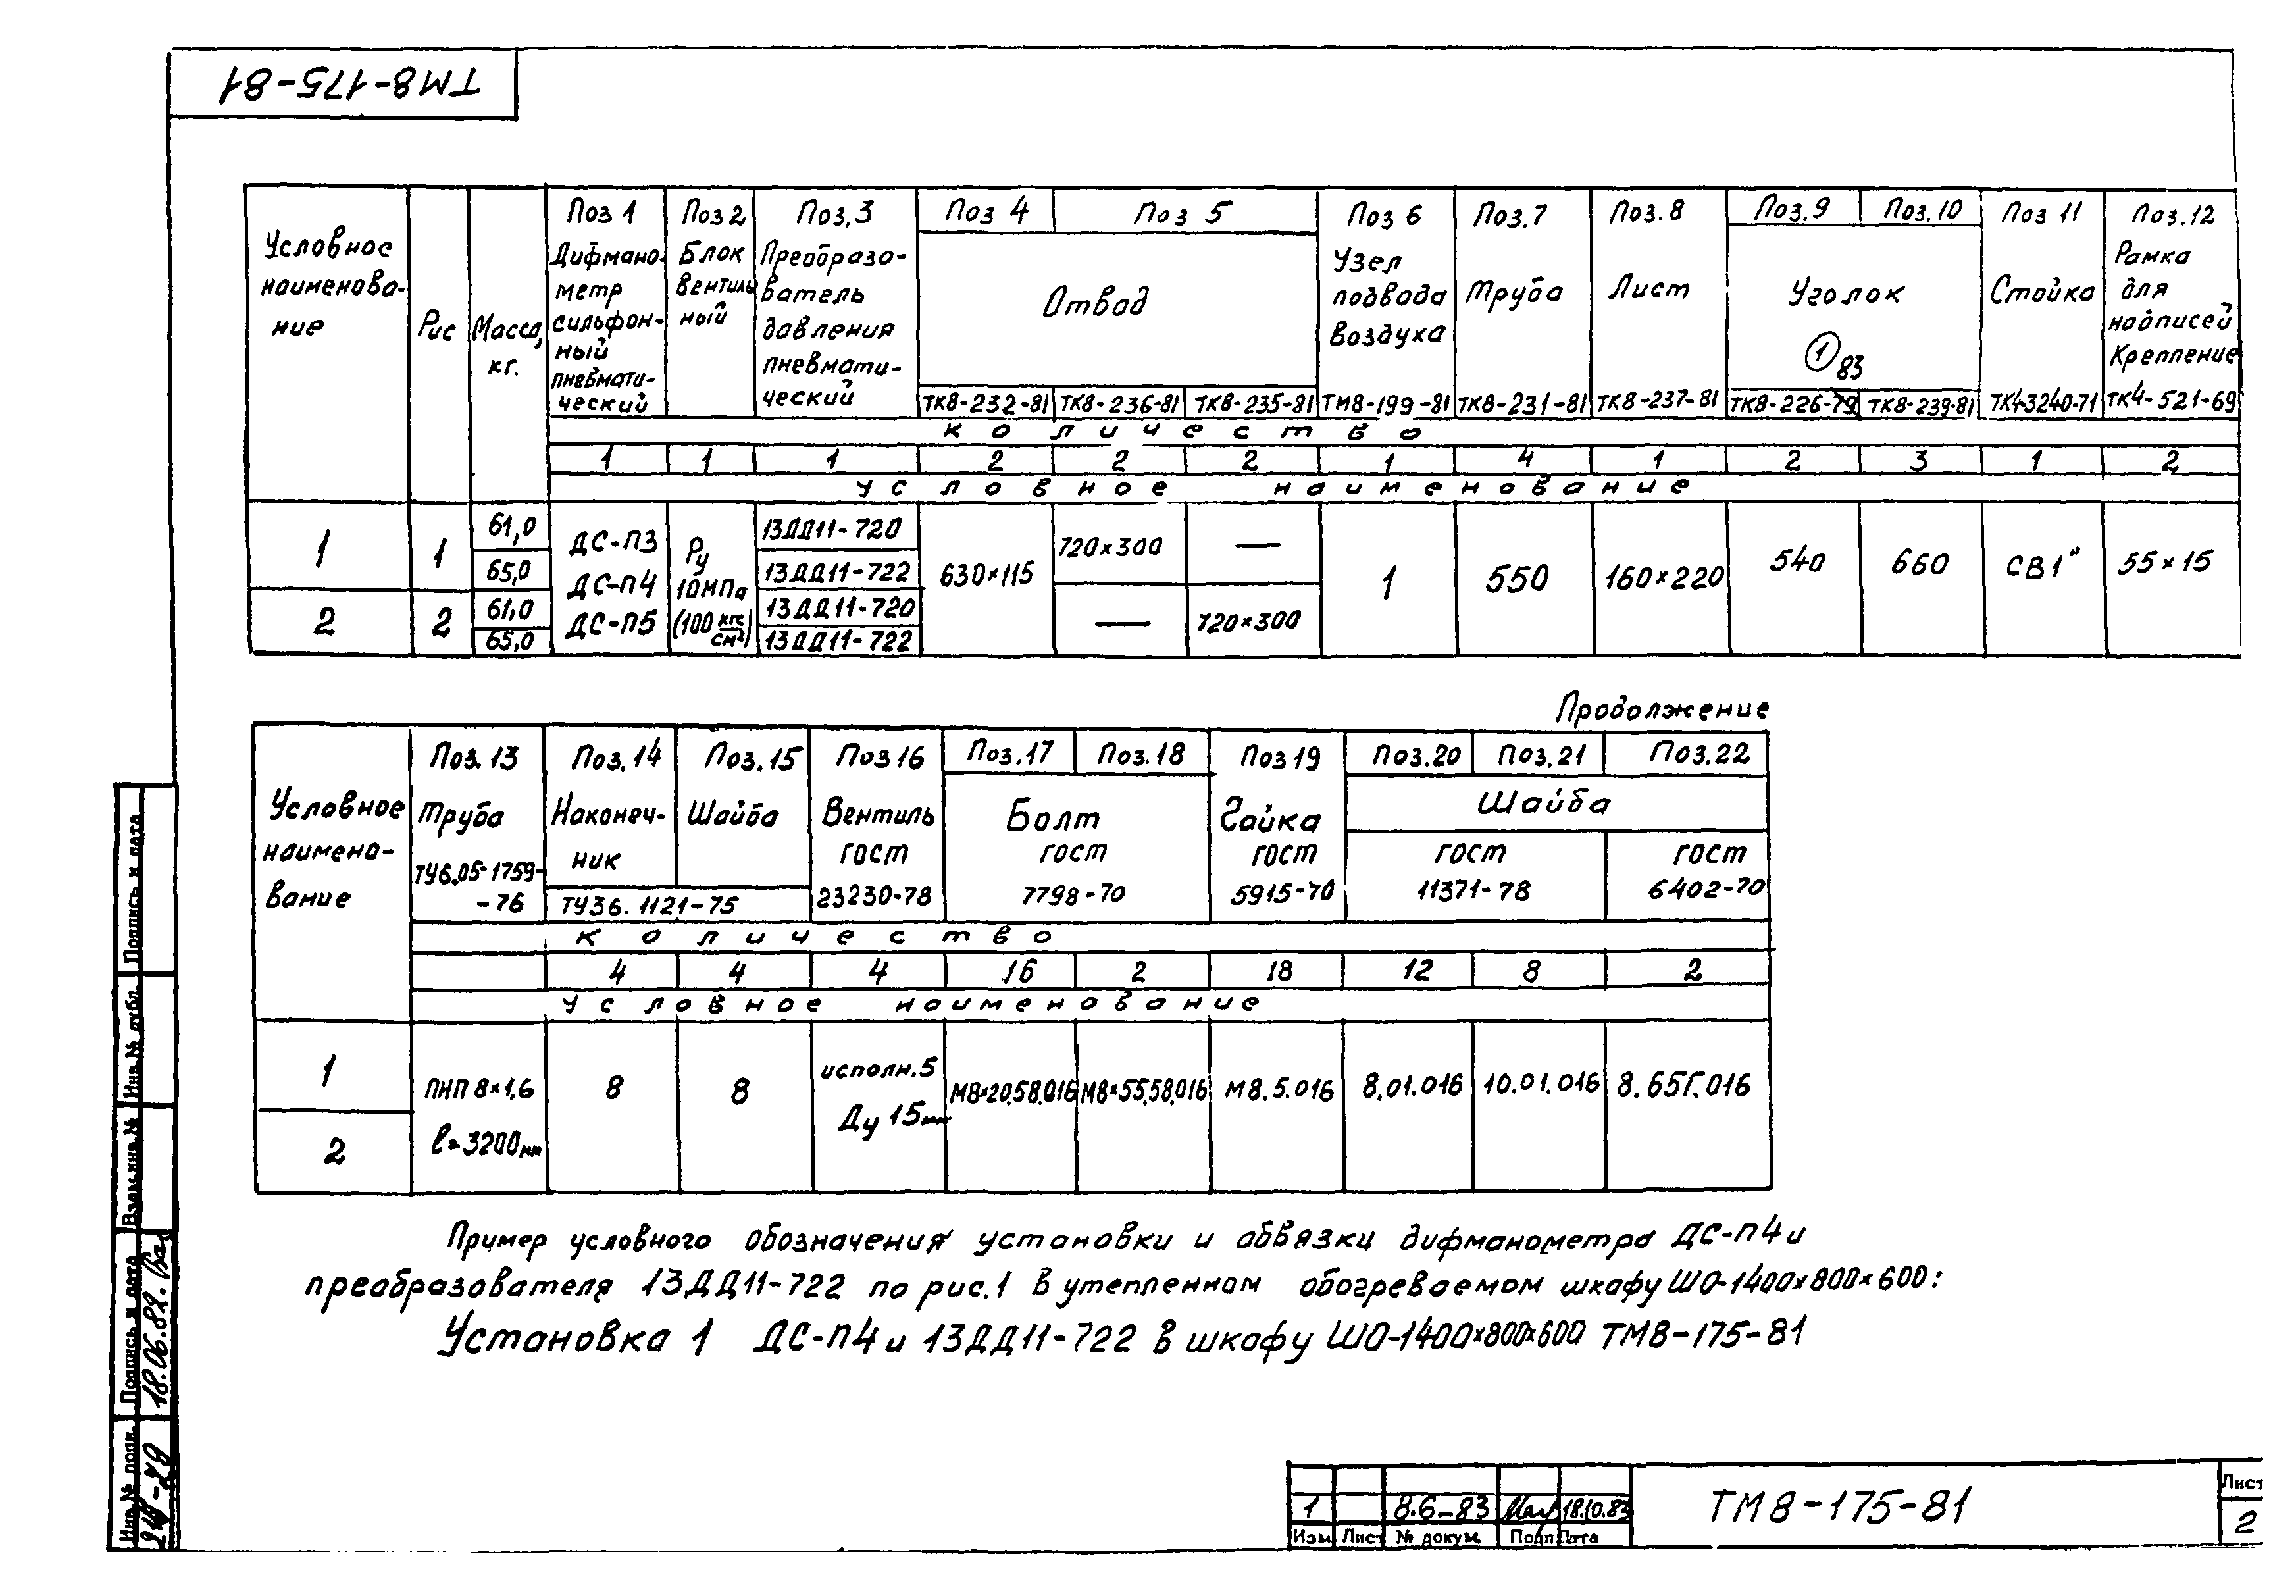 ТМ8-175-81
Условное наименова-ние
Рис
Масса, кг.
Поз 1 Дифмано-метр сильфон-ный пневмати-ческий
Поз 2 Блок вентиль ный
Поз.3 Преобразо-ватель давления пневмати-ческий
Поз 4 Поз 5
Отвод
ТК8-232-81 ТК8-236-81 ТК8-235-81
Поз 6 Узел подвода воздуха ТМ8-199-81
Поз.7 Труба ТК8-231-81
Поз.8 Лист ТК8-237-81
Поз.9 Поз.10
Уголок
1 83
ТК8-226-79 ТК8-239-81
Поз 11 Стойка ТК4-3240-71
Поз.12 Рамка для надписей Крепление ТК4-521-69
количество
1 1 1 2 2 2 1 4 1 2 3 1 2
условное наименование
1 1 61,0 13ДД11-720
65,0 13ДД11-722
2 2 61,0 13ДД11-720
65,0 13ДД11-722
ДС-П3
ДС-П4
ДС-П5
Ру
10МПа
(100 кгс/см²)
630×115
720×300 —
— 720×300
1 550 160×220 540 660 СВ1" 55×15
Продолжение
Условное наимено-вание
Поз.13 Труба ТУ6.05-1759--76
Поз.14 Наконеч-ник
Поз.15 Шайба
ТУ36.1121-75
Поз 16 Вентиль ГОСТ 23230-78
Поз.17 Поз.18
Болт ГОСТ 7798-70
Поз 19 Гайка ГОСТ 5915-70
Поз.20 Поз.21 Поз.22
Шайба
ГОСТ 11371-78
ГОСТ 6402-70
количество
4 4 4 16 2 18 12 8 2
условное наименование
1
2
ПНП 8×1,6
l=3200мм
8 8
исполн.5
Ду 15мм
М8×20.58.016 М8×55.58.016 М8.5.016 8.01.016 10.01.016 8.65Г.016
Пример условного обозначения установки и обвязки дифманометра ДС-П4 и
преобразователя 13ДД11-722 по рис.1 в утепленном обогреваемом шкафу ШО-1400×800×600:
Установка 1 ДС-П4 и 13ДД11-722 в шкафу ШО-1400×800×600 ТМ8-175-81
Подпись и дата
Инв.№ дубл.
Взам.инв.№
Подпись и дата
18.06.82.
Инв.№ подл.
1 8.6-83 18.10.83
Изм Лист № докум. Подп. Дата
ТМ8-175-81
Лист
2